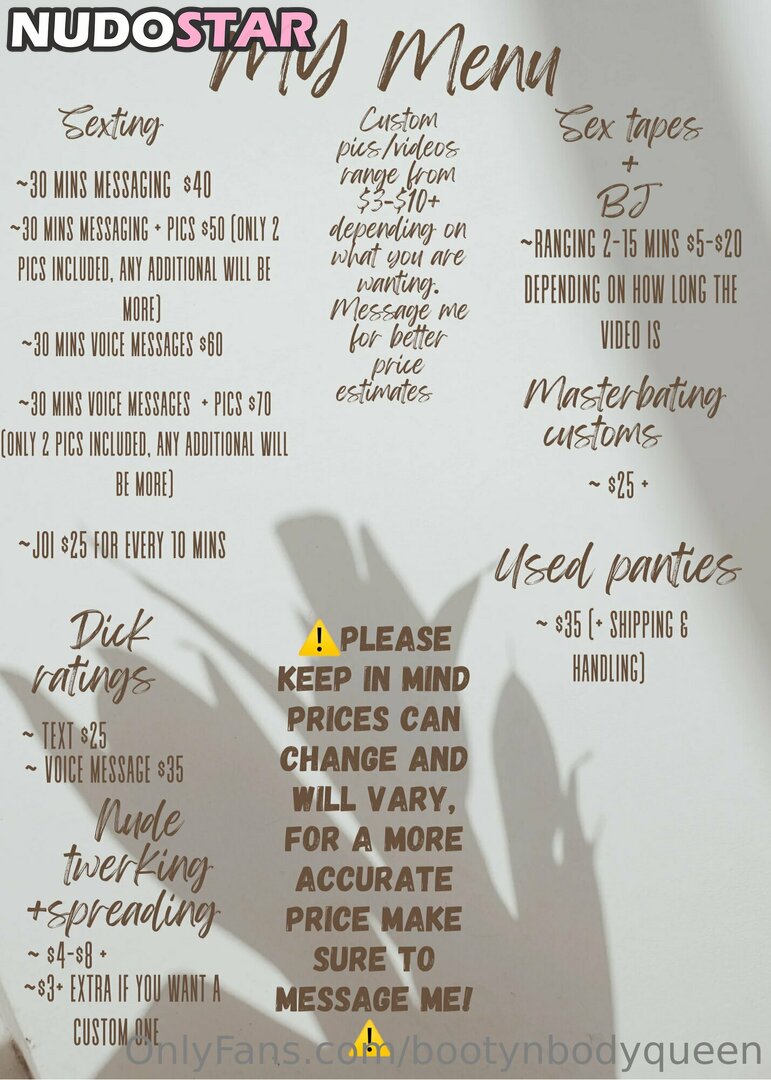 NUDOSTAR
My Menu
Sexting
~30 MINS MESSAGING $40
~30 MINS MESSAGING + PICS $50 (ONLY 2
PICS INCLUDED, ANY ADDITIONAL WILL BE
MORE)
~30 MINS VOICE MESSAGES $60
~30 MINS VOICE MESSAGES + PICS $70
(ONLY 2 PICS INCLUDED, ANY ADDITIONAL WILL
BE MORE)
~JOI $25 FOR EVERY 10 MINS
Dick
ratings
~ TEXT $25
~ VOICE MESSAGE $35
Nude
twerking
+spreading
~ $4-$8 +
~$3+ EXTRA IF YOU WANT A
CUSTOM ONE
Custom
pics/videos
range from
$3-$10+
depending on
what you are
wanting.
Message me
for better
price
estimates
⚠️PLEASE
KEEP IN MIND
PRICES CAN
CHANGE AND
WILL VARY,
FOR A MORE
ACCURATE
PRICE MAKE
SURE TO
MESSAGE ME!
⚠️
Sex tapes
+
BJ
~RANGING 2-15 MINS $5-$20
DEPENDING ON HOW LONG THE
VIDEO IS
Masterbating
customs
~ $25 +
Used panties
~ $35 (+ SHIPPING &
HANDLING)
OnlyFans.com/bootynbodyqueen